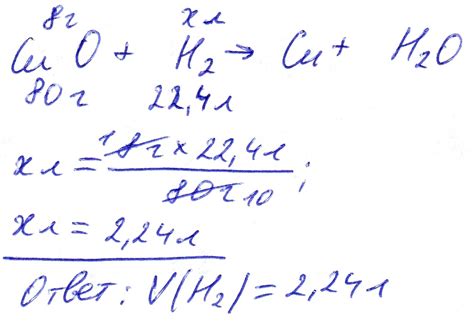 8г х л
CuO + H₂ → Cu + H₂O
80 г 22,4л
1 8 г × 22,4л
х л = ;
80 г 10
х л = 2,24л
Ответ: V(H₂) = 2,24л